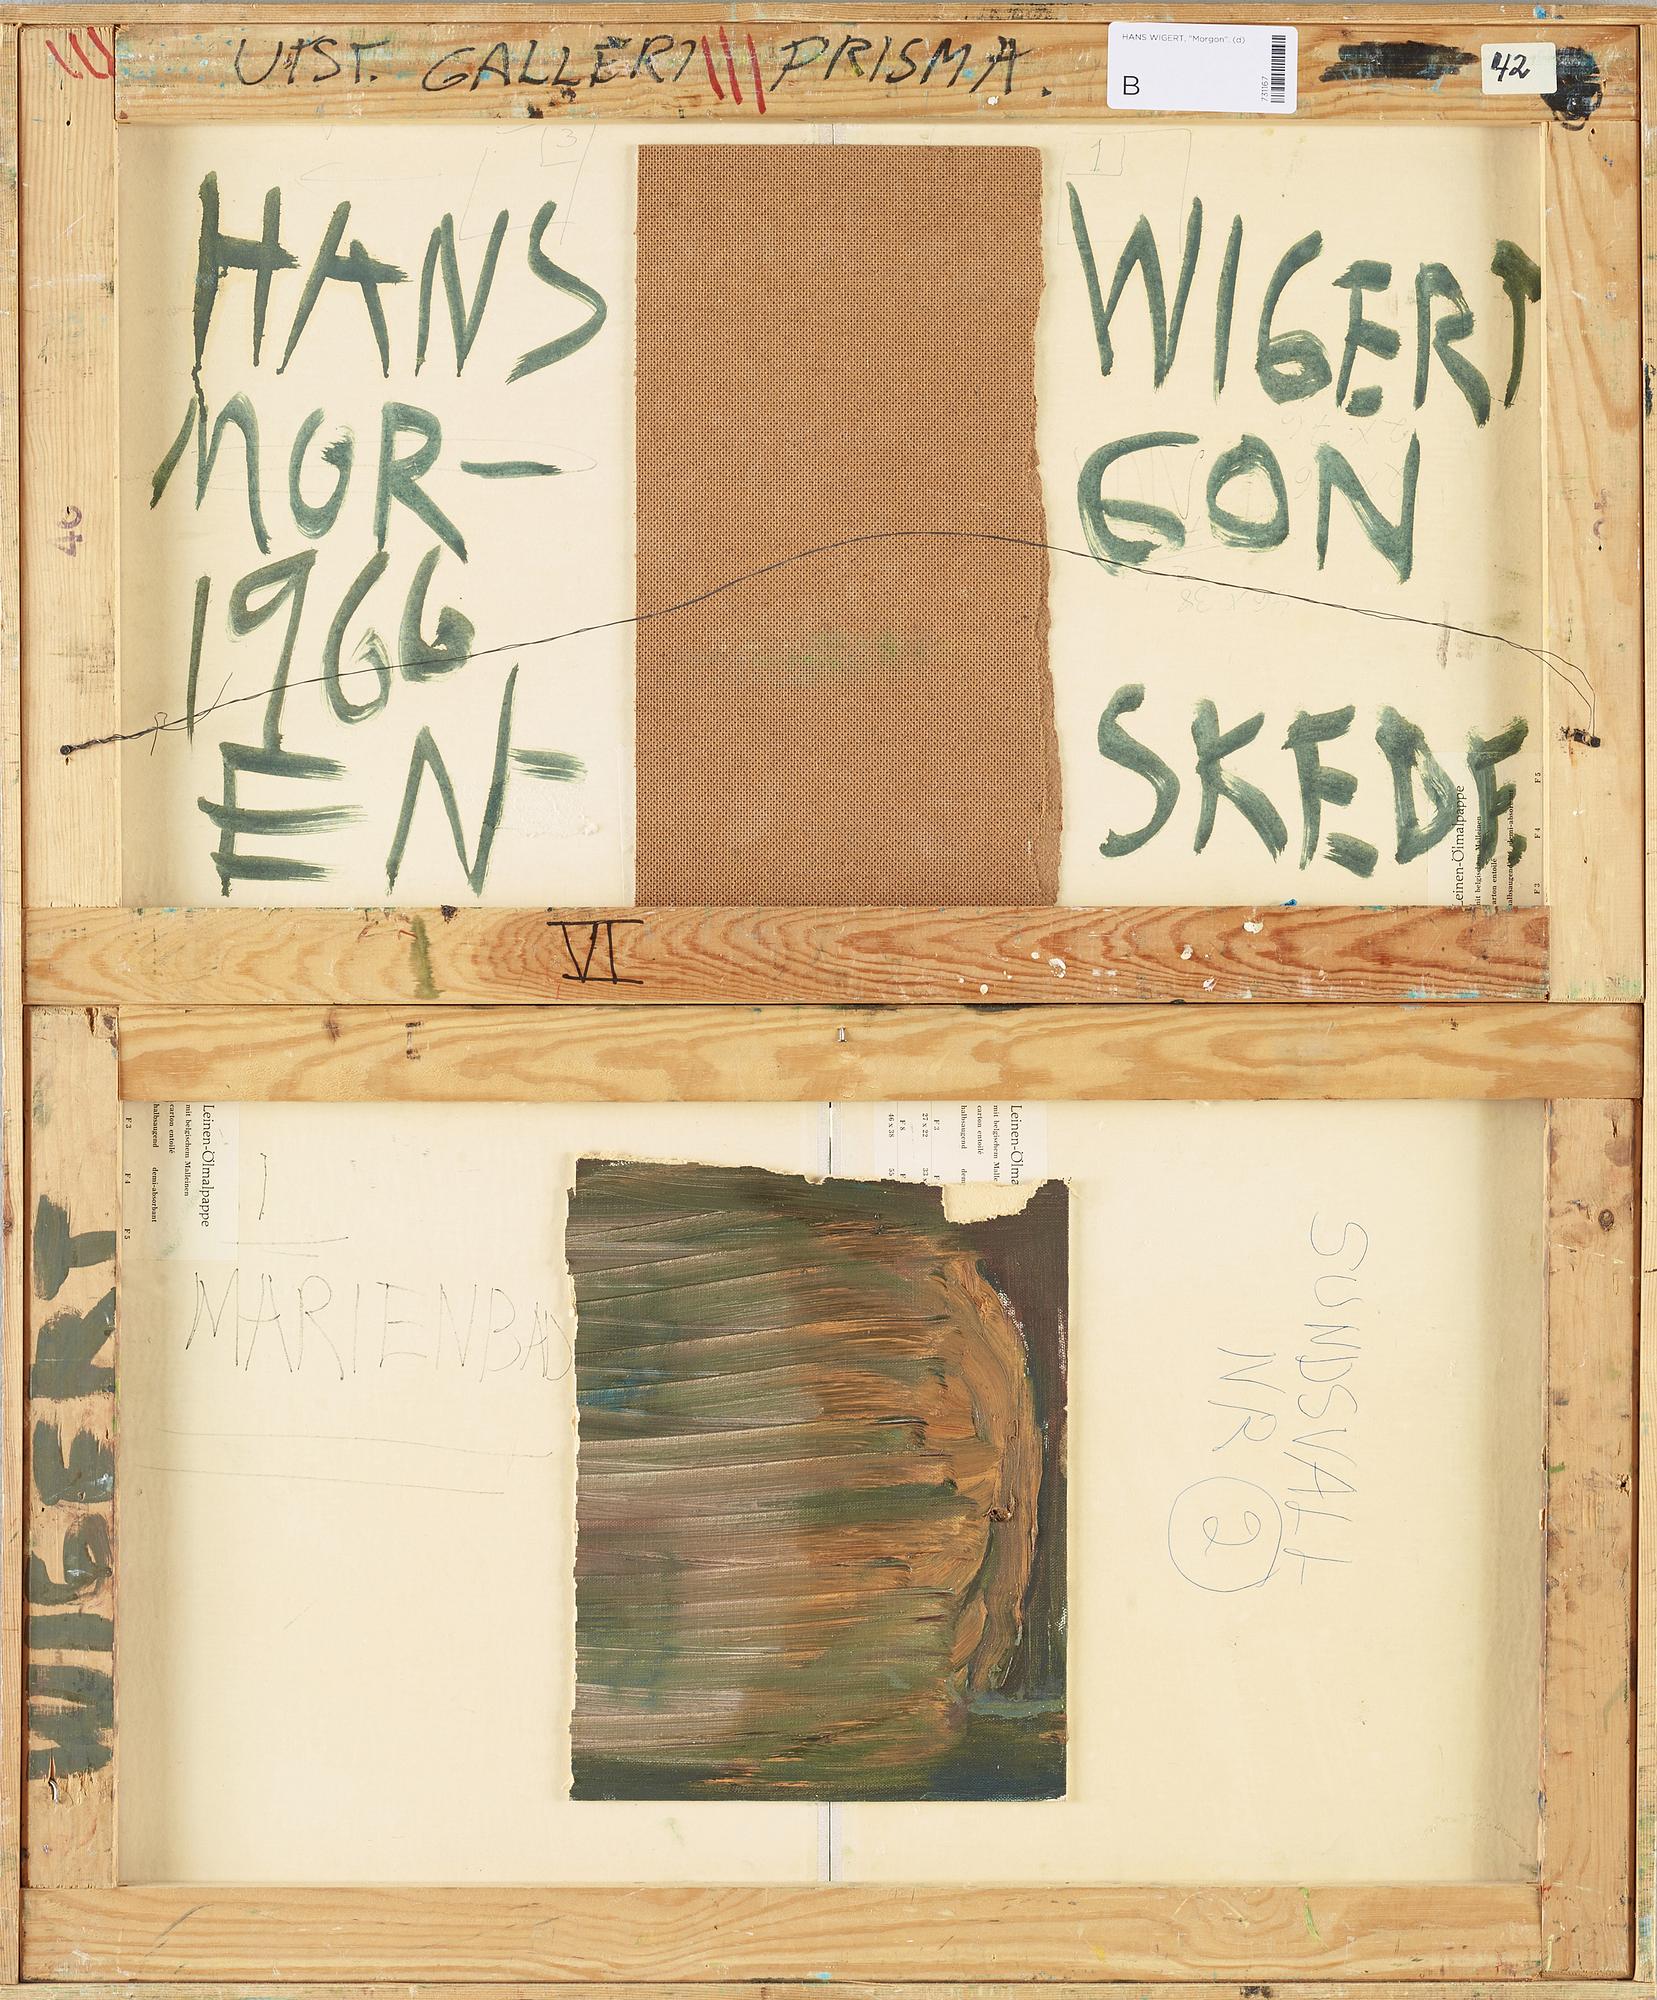 UTST. GALLERI PRISMA.
HANS WIGERT, "Morgon". (d)
B
731167
42
3
1
HANS WIGERT
MOR- GON
1966
EN- SKEDE
46
46 x 38
Leinen-Ölmalpappe
mit belgischem Malleinen
carton entoilé
halbsaugend demi-absorbant
F 3 F 4 F 5
VI
Leinen-Ölmalpappe
mit belgischem Malleinen
carton entoilé
halbsaugend demi-absorbant
F 3 F 4 F 5
Leinen-Ölma
mit belgischem Malle
carton entoilé
halbsaugend dem
F 3 F
27 x 22 33
F 8 F
46 x 38 55
1
MARIENBAD
SUNDSVALL
NR 2
WIGERT